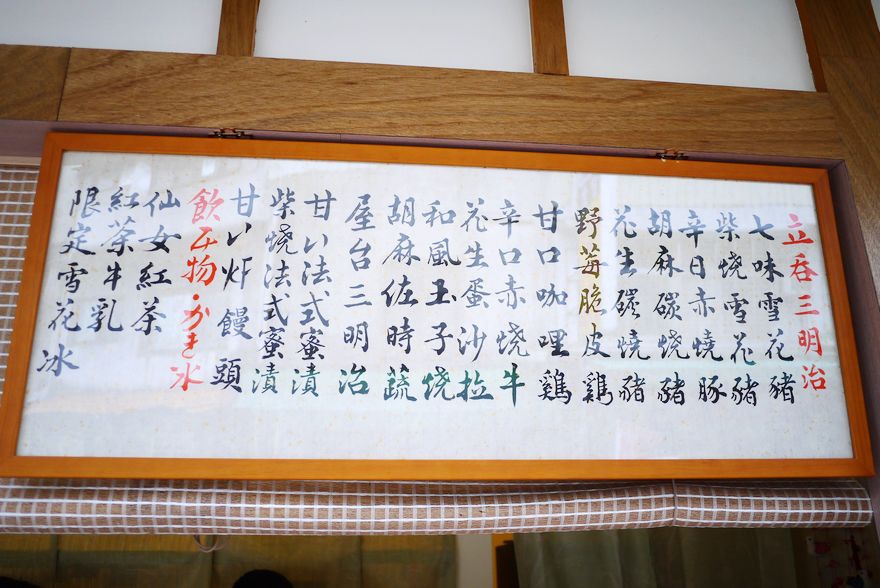 立吞三明治
七味雪花豬
柴燒雪花豬
辛日赤燒豚
胡麻碳燒豬
花生碳燒豬
野莓脆皮鷄
甘口咖哩鷄
辛口赤燒牛
花生蛋沙拉
和風玉子燒
胡麻佐時蔬
屋台三明治
甘い法式蜜漬
柴燒法式蜜漬
甘い炉饅頭
飲み物・かき氷
仙女紅茶
紅茶牛乳
限定雪花冰